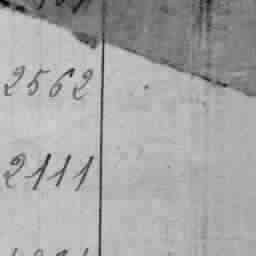 2562
2111